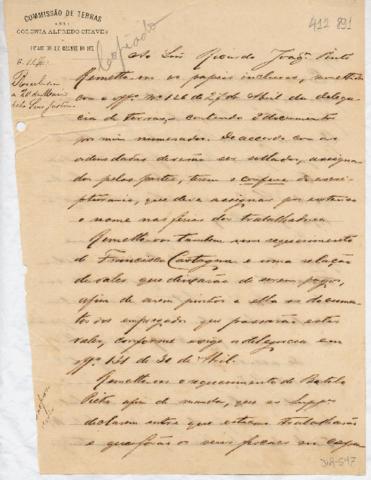 COMMISSÃO DE TERRAS
COLONIA ALFREDO CHAVES
412 891
Copiado
Ao Snr Ricardo Joaqm Pinto
Remetto-vos os papeis inclusos, remettidos
com o offo nº 126 de 27 de Abril da delega
cia de terras, contendo 2 documentos
por mim numerados. De accordo com as
ordens dadas deverão ser sellados, assigna
dos pelas partes, terem o confere do escri-
pturario, que deve assignar por extenso
o nome nas ferias dos trabalhadores
Remetto-vos tambem um requerimento
de Francisco Castagna e uma relação
de vales que deixarão de serem pagos,
afim de serem juntos a ella os documen
tos dos empregados que passarão estes
vales, conforme exige a delegacia em
offo 131 de 30 de Abril.
Remetto-vos o requerimento de
afim de mandar, que os Suppes
declarem entre que estacas trabalharão
e quaes forão os seus
SIA-547